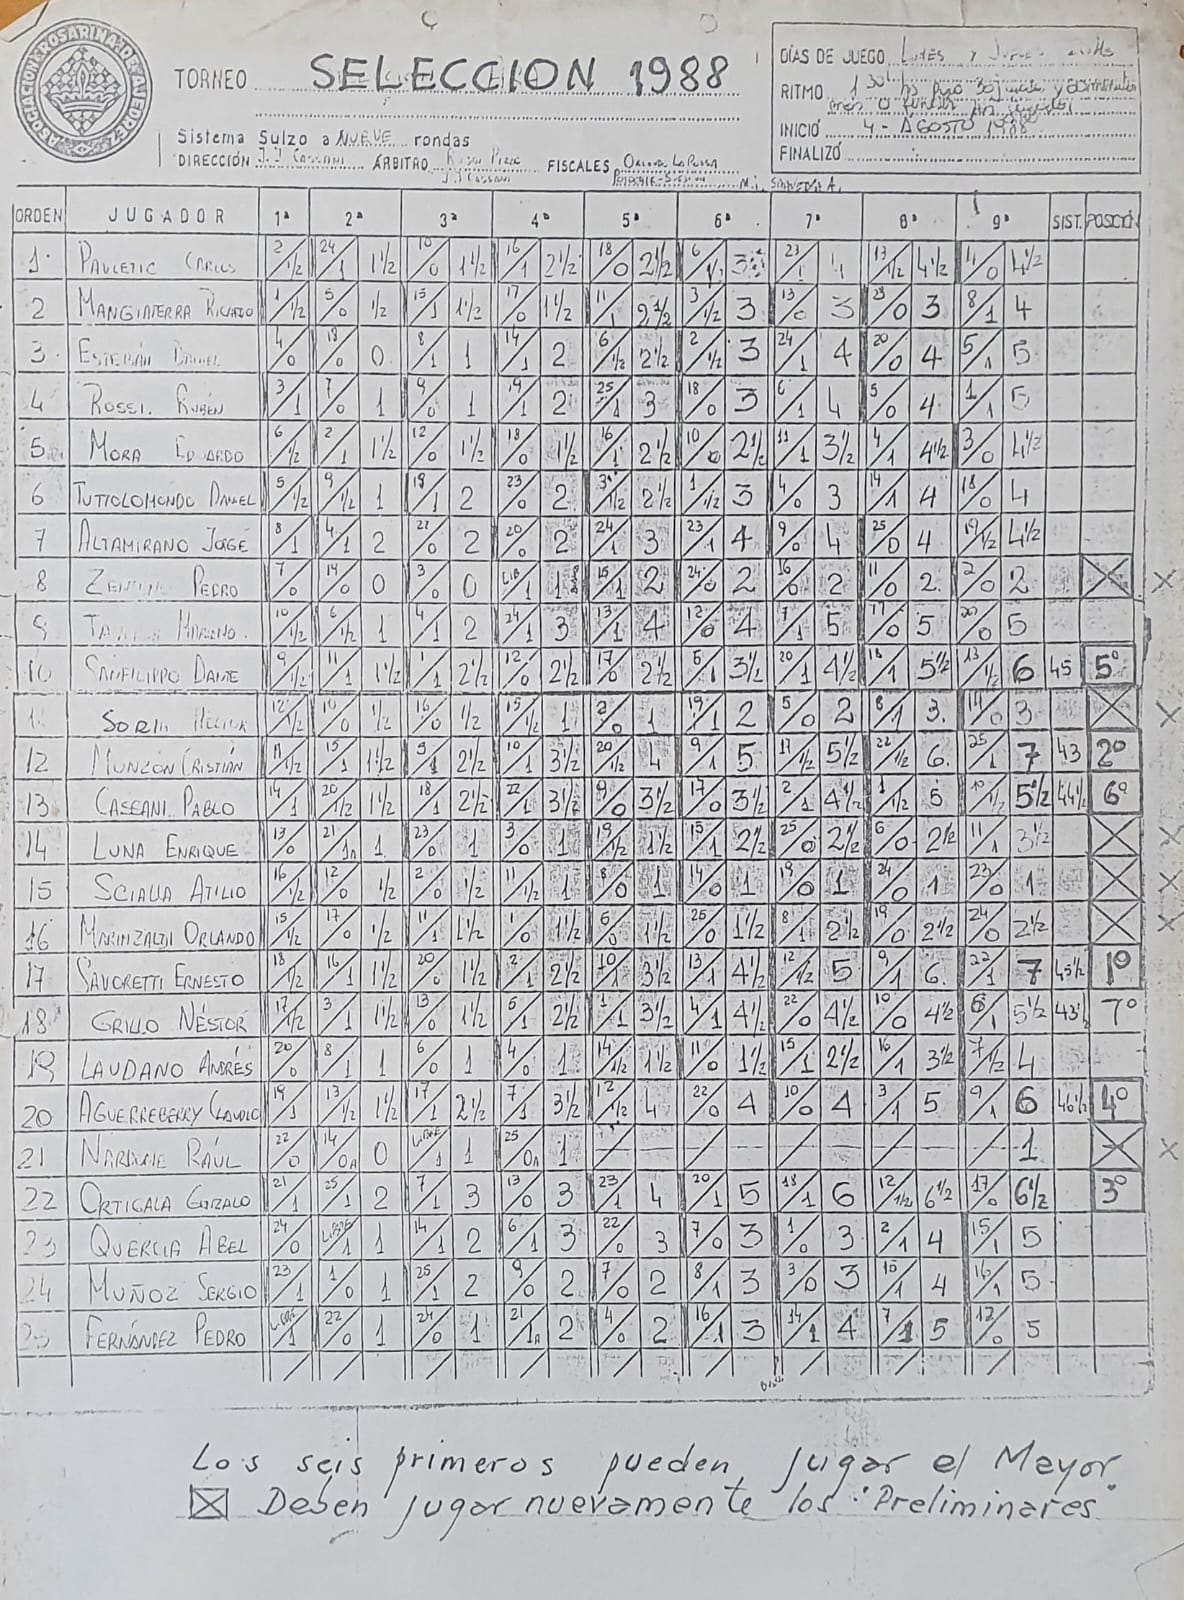 ASOCIACION ROSARINA DE AJEDREZ
TORNEO SELECCION 1988
Sistema Suizo a NUEVE rondas
DIRECCIÓN J.J. CASSANI ÁRBITRO J.J CASSANI FISCALES
DÍAS DE JUEGO LUNES Y
RITMO 1
INICIÓ 4 - AGOSTO 1988
FINALIZÓ
ORDEN JUGADOR 1ª 2ª 3ª 4ª 5ª 6ª 7ª 8ª 9ª SIST. POSCIÓ
1 PAULETIC CARLOS 2/½ 24/1 1½ 10/0 1½ 16/1 2½ 18/0 2½ 6/½ 3 23/1 4 13/½ 4½ 4/0 4½
2 MANGIATERRA RICARDO 1/½ 5/0 ½ 15/1 1½ 17/0 1½ 11/1 2½ 3/½ 3 13/0 3 23/0 3 8/1 4
3 ESTEBAN DANIEL 4/0 18/0 0 8/1 1 14/1 2 6/½ 2½ 2/½ 3 24/1 4 20/0 4 5/1 5
4 ROSSI RUBÉN 3/1 7/0 1 9/0 1 19/1 2 25/1 3 18/0 3 6/1 4 5/0 4 1/1 5
5 MORA EDUARDO 6/½ 2/1 1½ 12/0 1½ 18/0 1½ 16/1 2½ 10/0 2½ 11/1 3½ 4/1 4½ 3/0 4½
6 TUTTOLOMONDO DANIEL 5/½ 9/½ 1 19/1 2 23/0 2 3/½ 2½ 1/½ 3 4/0 3 14/1 4 18/0 4
7 ALTAMIRANO JOSÉ 8/1 4/1 2 22/0 2 20/0 2 24/1 3 23/1 4 9/0 4 25/0 4 19/½ 4½
8 PEDRO 7/0 14/0 0 3/0 0 LIB/1 1 15/1 2 24/0 2 16/0 2 11/0 2 2/0 2 X
9 10/½ 6/½ 1 4/1 2 24/1 3 13/1 4 12/0 4 7/1 5 17/0 5 20/0 5
10 SANFILIPPO DANTE 9/½ 11/1 1½ 1/1 2½ 12/0 2½ 17/0 2½ 5/1 3½ 20/1 4½ 18/1 5½ 13/½ 6 45 5º
11 12/½ 10/0 ½ 16/0 ½ 15/½ 1 2/0 1 19/1 2 5/0 2 8/1 3 14/0 3 X
12 MUNZON CRISTIÁN 11/½ 15/1 1½ 5/1 2½ 10/1 3½ 20/½ 4 9/1 5 17/½ 5½ 22/½ 6 25/1 7 43 2º
13 CASSANI PABLO 14/1 20/½ 1½ 18/1 2½ 22/1 3½ 9/0 3½ 17/0 3½ 2/1 4½ 1/½ 5 10/½ 5½ 44½ 6º
14 LUNA ENRIQUE 13/0 21/1A 1 23/0 1 3/0 1 19/½ 1½ 15/1 2½ 25/0 2½ 6/0 2½ 11/1 3½ X
15 SCIALLA ATILIO 16/½ 12/0 ½ 2/0 ½ 11/½ 1 8/0 1 14/0 1 19/0 1 24/0 1 23/0 1 X
16 ORLANDO 15/½ 17/0 ½ 11/1 1½ 1/0 1½ 5/0 1½ 25/0 1½ 8/1 2½ 19/0 2½ 24/0 2½ X
17 SAVORETTI ERNESTO 18/½ 16/1 1½ 20/0 1½ 2/1 2½ 10/1 3½ 13/1 4½ 12/½ 5 9/1 6 22/1 7 45½ 1º
18 GRILLO NÉSTOR 17/½ 3/1 1½ 13/0 1½ 5/1 2½ 1/1 3½ 4/1 4½ 22/0 4½ 10/0 4½ 6/1 5½ 43½ 7º
19 LAUDANO ANDRÉS 20/0 8/1 1 6/0 1 4/0 1 14/½ 1½ 11/0 1½ 15/1 2½ 16/1 3½ 7/½ 4
20 AGUERREBERRY CLAUDIO 19/1 13/½ 1½ 17/1 2½ 7/1 3½ 12/½ 4 22/0 4 10/0 4 3/1 5 9/1 6 46½ 4º
21 NARDONE RAÚL 22/0 14/0A 0 LIBRE/1 1 25/0A 1 1 X
22 ORTIGALA GONZALO 21/1 25/1 2 7/1 3 13/0 3 23/1 4 20/1 5 18/1 6 12/½ 6½ 17/0 6½ 3º
23 QUERCIA ABEL 24/0 LIBRE/1 1 14/1 2 6/1 3 22/0 3 7/0 3 1/0 3 2/1 4 15/1 5
24 MUÑOZ SERGIO 23/1 1/0 1 25/1 2 9/0 2 7/0 2 8/1 3 3/0 3 15/1 4 16/1 5
25 FERNÁNDEZ PEDRO LIBRE/1 22/0 1 24/0 1 21/1A 2 4/0 2 16/1 3 14/1 4 7/1 5 12/0 5
Los seis primeros pueden jugar el Mayor
Deben jugar nuevamente los "Preliminares"